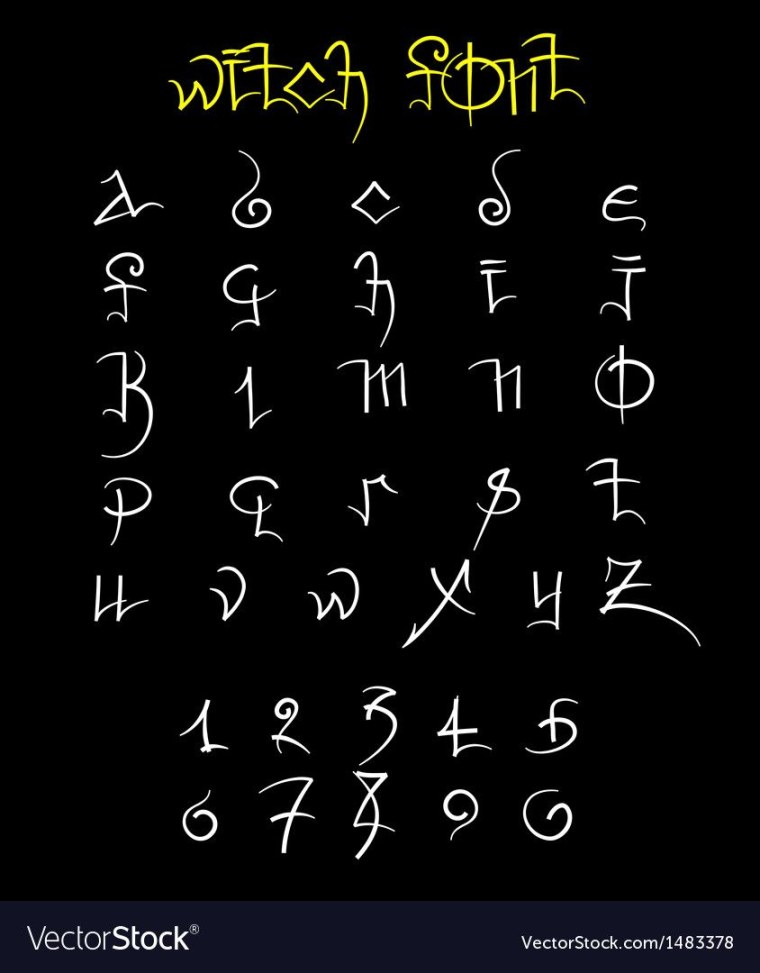 witch font
a b c d e
f g h i j
k l m n o
p q r s t
u v w x y z
1 2 3 4 5
6 7 8 9 0
VectorStock®
VectorStock.com/1483378